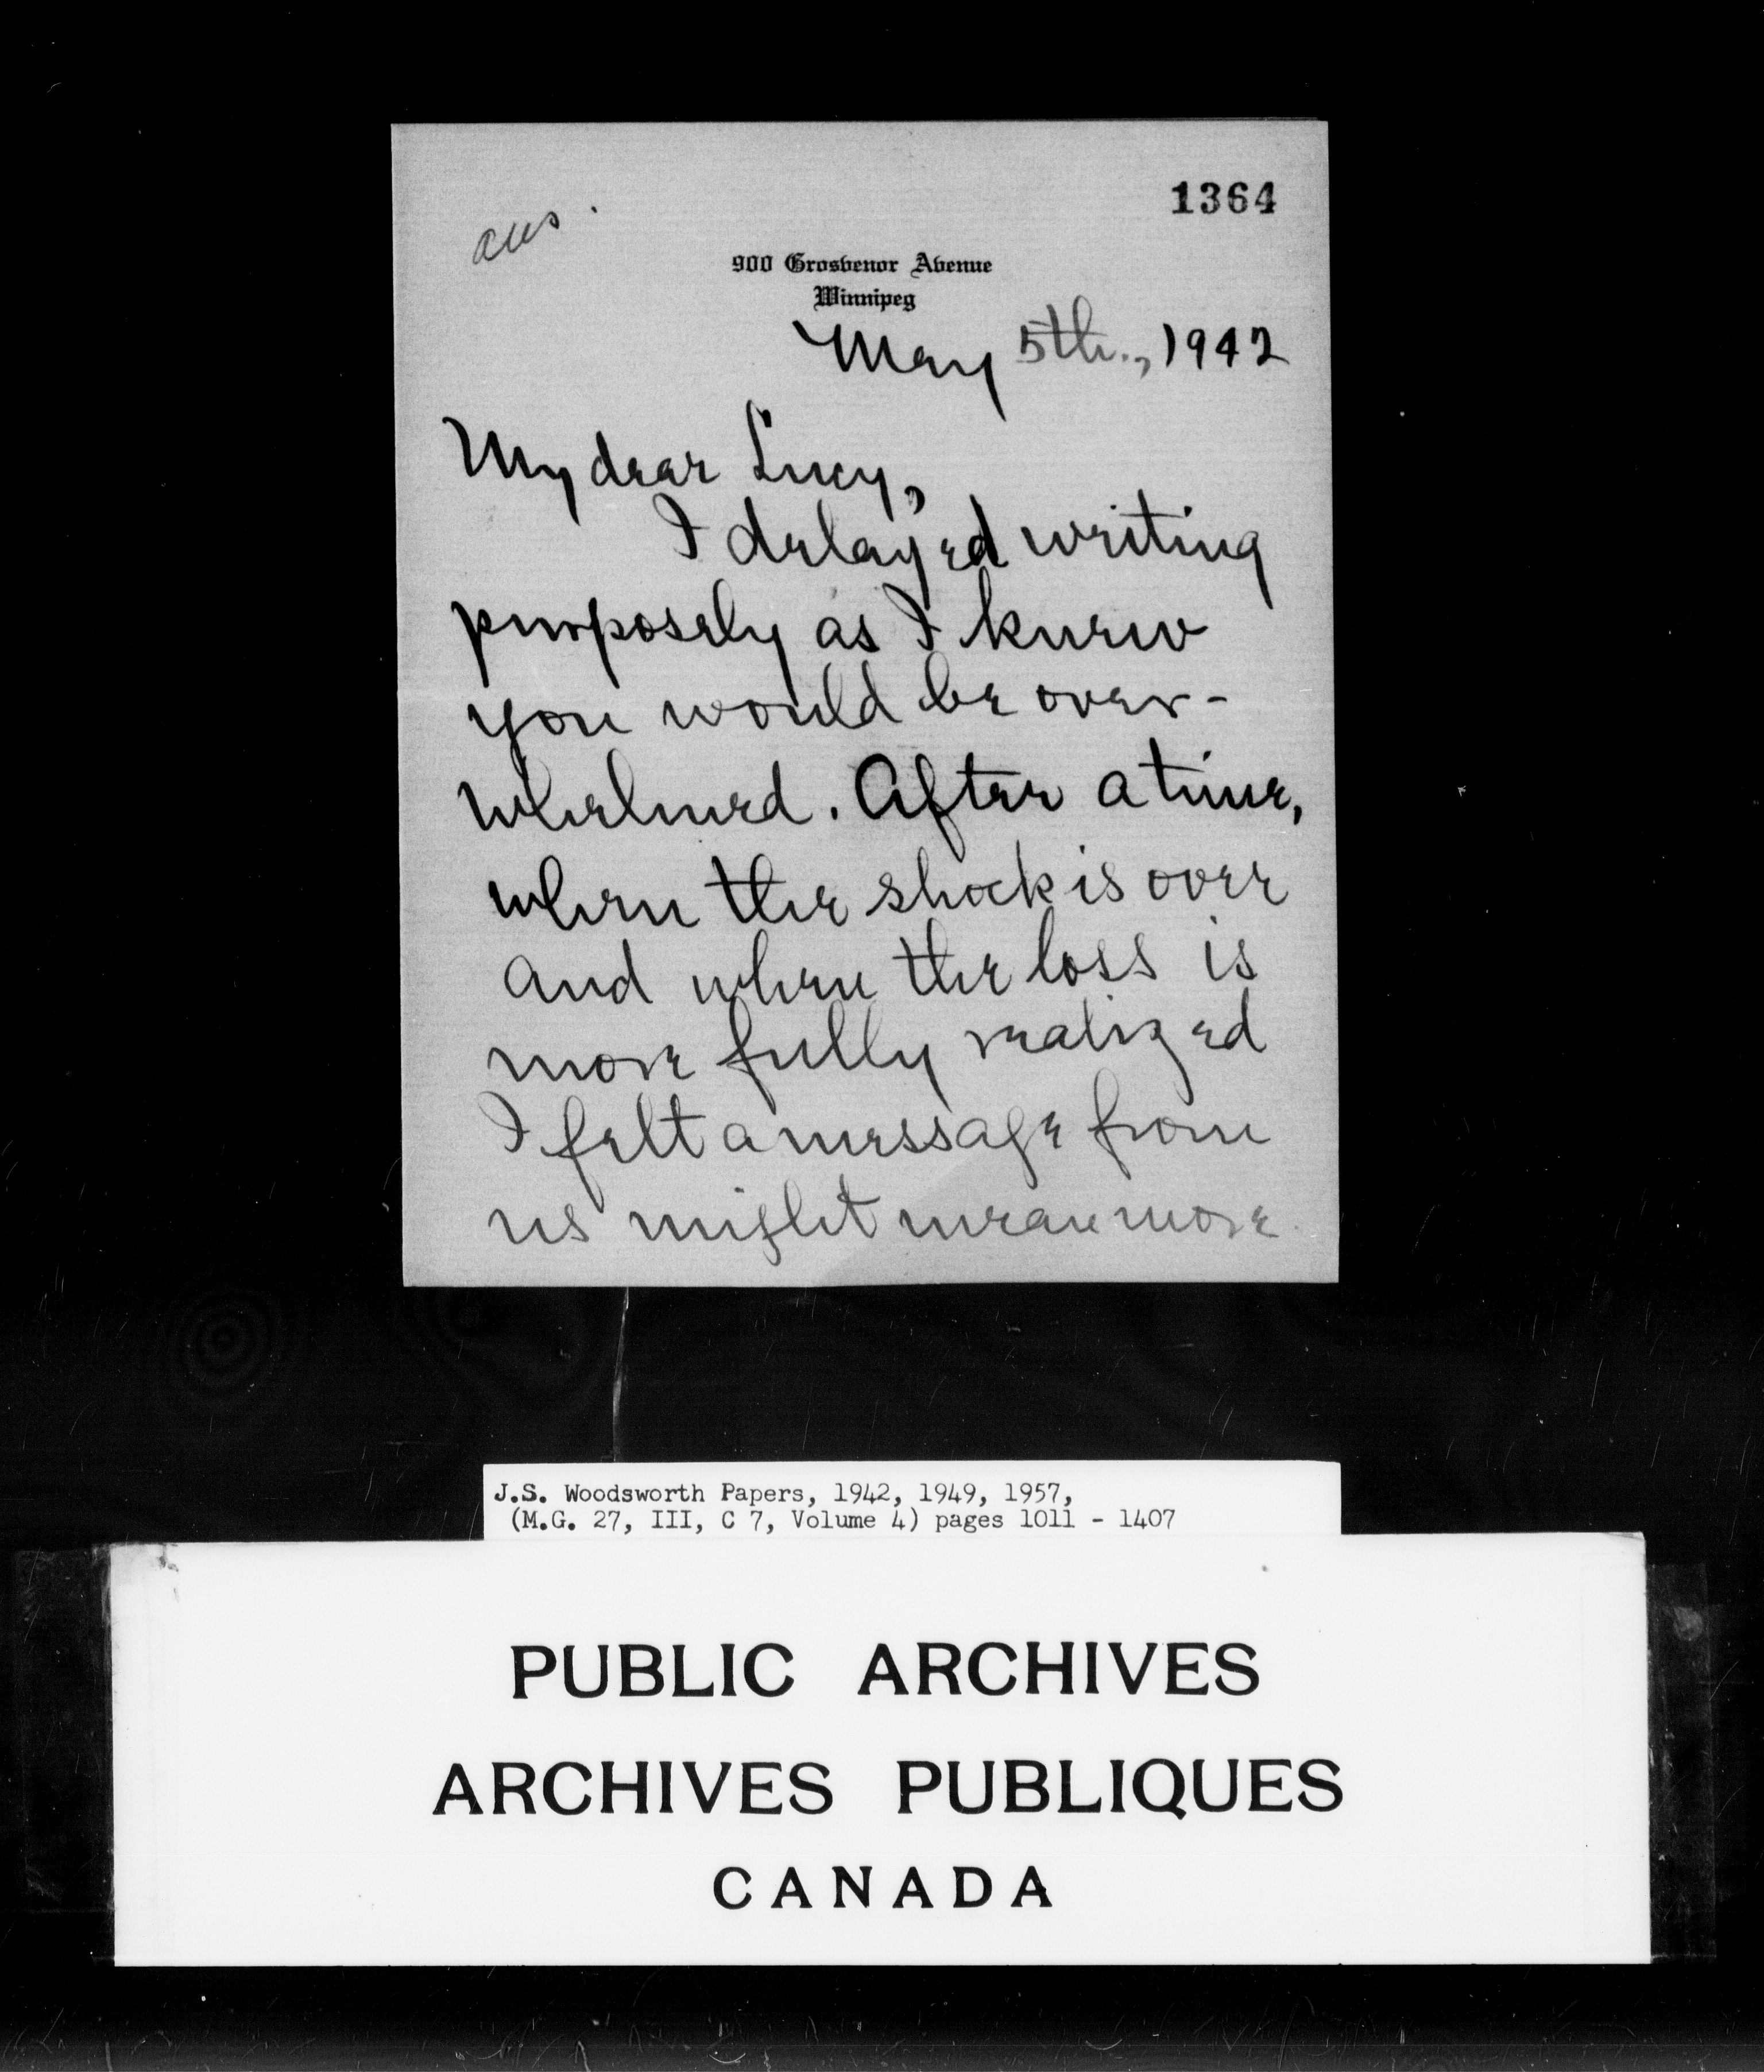 1364
ans.
900 Grosvenor Avenue
Winnipeg
May 5th., 1942
My dear Lucy,
I delayed writing
purposely as I knew
you would be over-
whelmed. After a time,
when the shock is over
and when the loss is
more fully realized
I felt a message from
us might mean more
J.S. Woodsworth Papers, 1942, 1949, 1957,
(M.G. 27, III, C 7, Volume 4) pages 1011 - 1407
PUBLIC ARCHIVES
ARCHIVES PUBLIQUES
CANADA